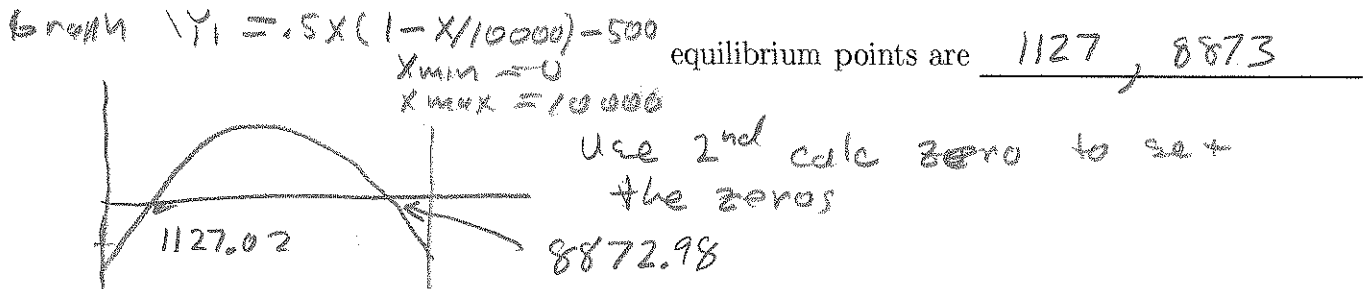 Graph \Y1 = .5X(1-X/10000)-500
Xmin = 0
Xmax = 10000
equilibrium points are 1127, 8873
Use 2nd calc zero to get
the zeros
1127.02
8872.98